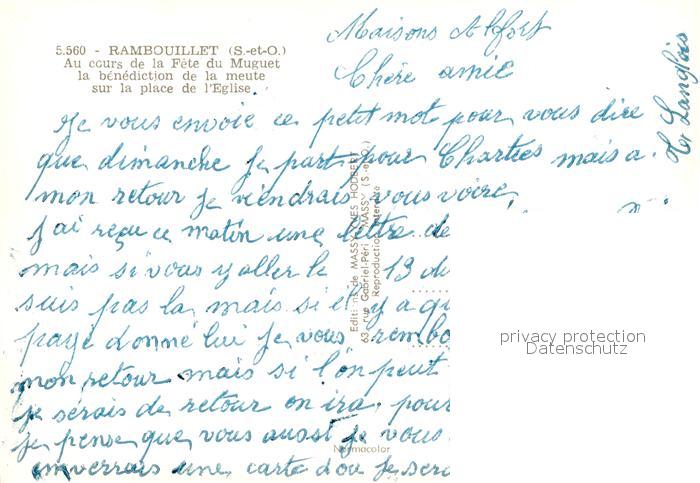 5.560 - RAMBOUILLET (S.-et-O.)
Au cours de la Fête du Muguet
la bénédiction de la meute
sur la place de l'Eglise.
Maisons Alfort
Chère amie
Je vous envoie ce petit mot pour vous dire
que dimanche je part pour Chartres mais a
mon retour je viendrais vous voire,
J'ai reçu ce matin une lettre de
mais si vous y aller le 13 du
suis pas la, mais si il y a qu
paye donné lui je vous rembo
mon retour mais si l'on peut
je serais de retour on ira pour
je pense que vous aussi je vous
enverrais une carte d'ou je sera
L Langlois
Editions de MASSY - YVES HOUDERT
63, rue Gabriel-Péri - MASSY (S.-et-O.)
Reproduction interdite
Normacolor
privacy protection
Datenschutz